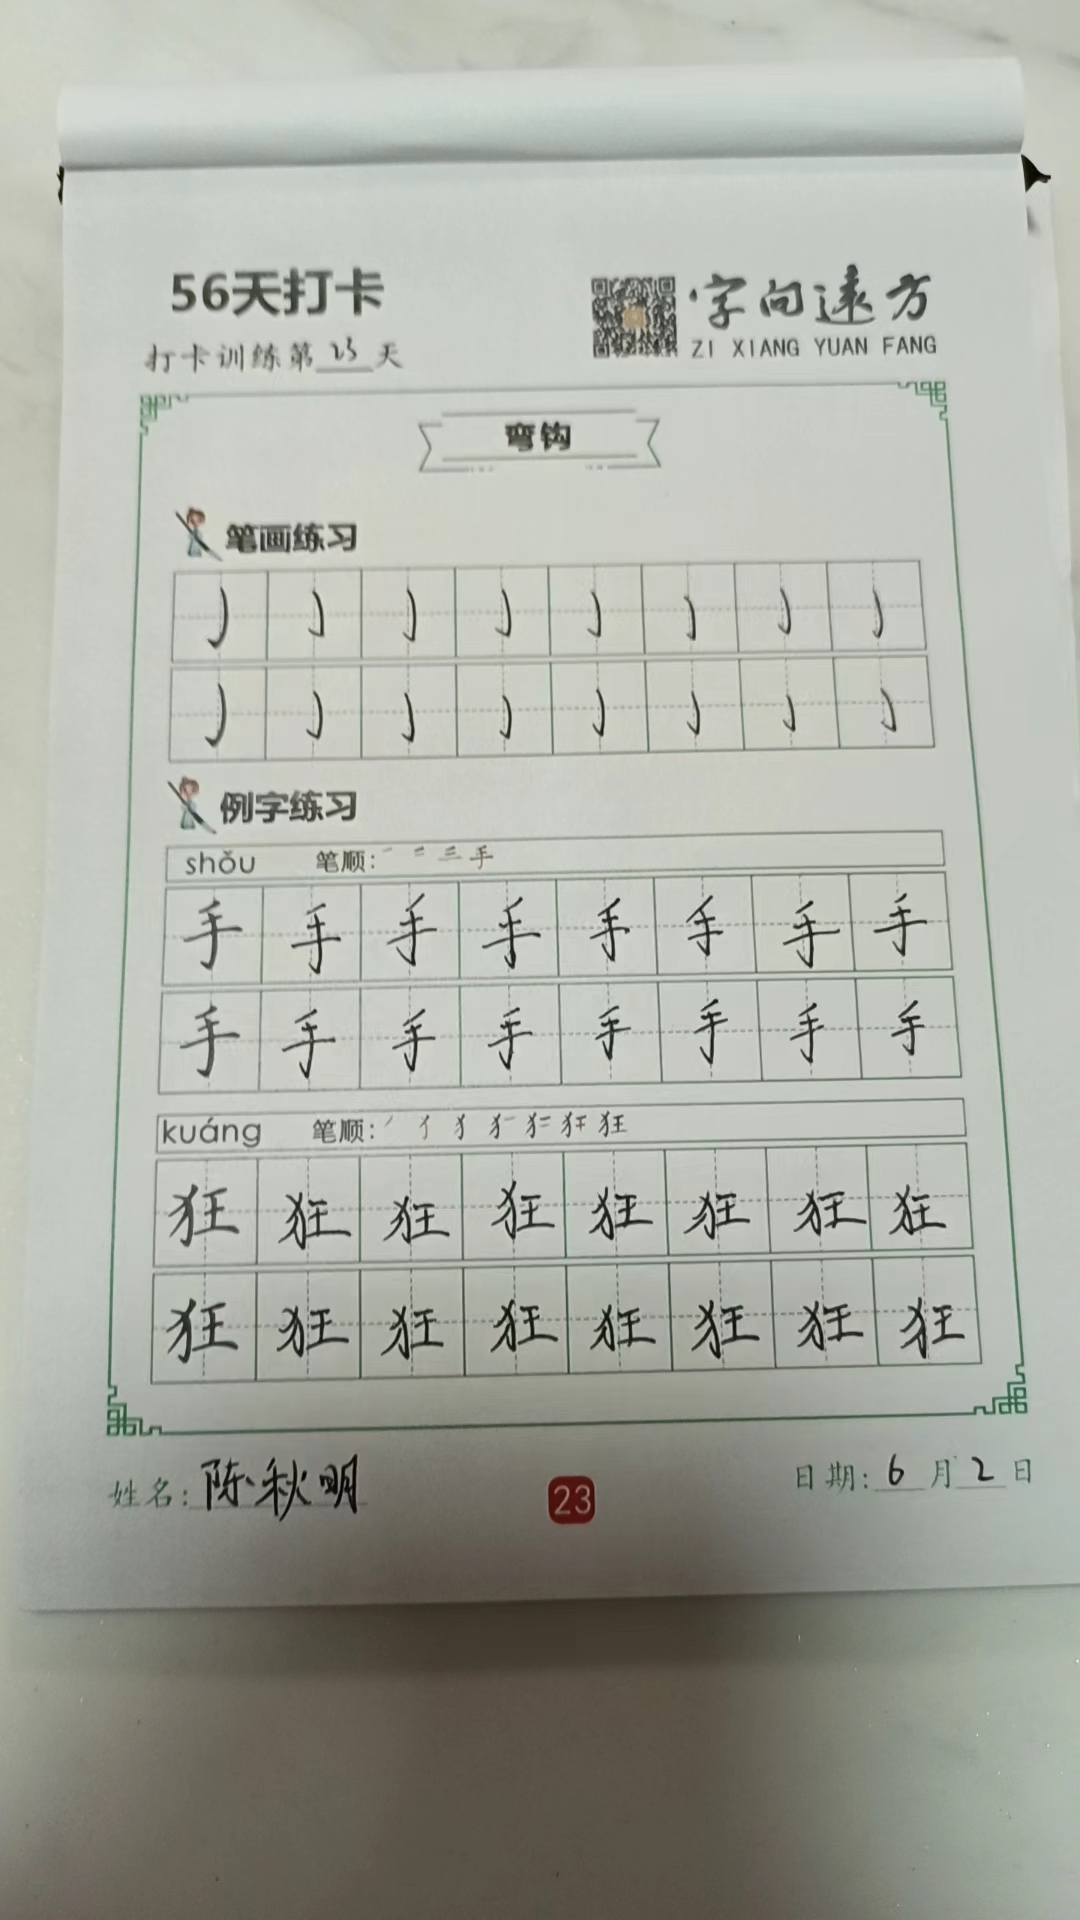 56天打卡
字向远方
打卡训练第23天
ZI XIANG YUAN FANG
弯钩
笔画练习
例字练习
shǒu 笔顺: 一 二 三 手
手 手 手 手 手 手 手 手
手 手 手 手 手 手 手 手
kuáng 笔顺:
狂 狂 狂 狂 狂 狂 狂 狂
狂 狂 狂 狂 狂 狂 狂 狂
姓名: 陈秋明
23
日期: 6月2日